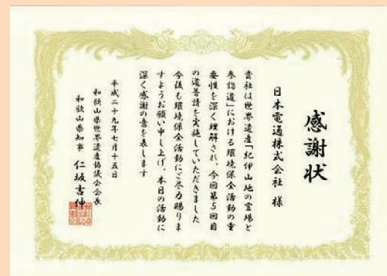 感謝状
日本電通株式会社 様
貴社は世界遺産「紀伊山地の霊場と
参詣道」における環境保全活動の重
要性を深く理解され、今回第5回目
の道普請を実施していただきました
今後も環境保全活動にご尽力賜りま
すようお願い申し上げ、本日の活動に
深く感謝の意を表します
平成二十九年七月十五日
和歌山県世界遺産協議会会長
和歌山県知事 仁坂吉伸